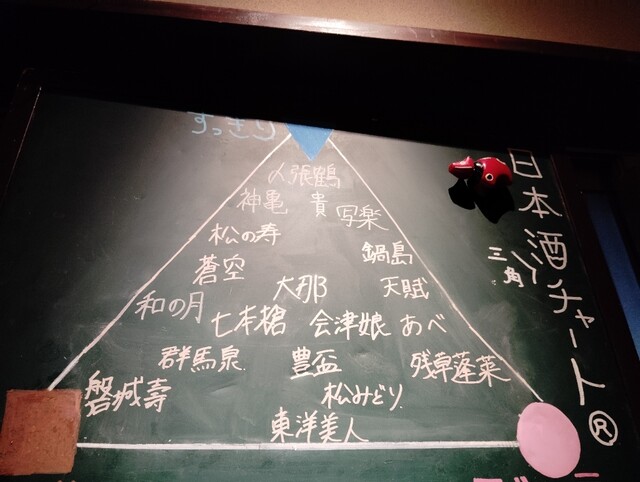 日本酒チャート®
三角
すっきり
〆張鶴
神亀 貴 写楽
松の寿 鍋島
蒼空 大那 天賦
和の月 七本槍 会津娘 あべ
群馬泉 豊盃 残草蓬莱
磐城壽 松みどり
東洋美人